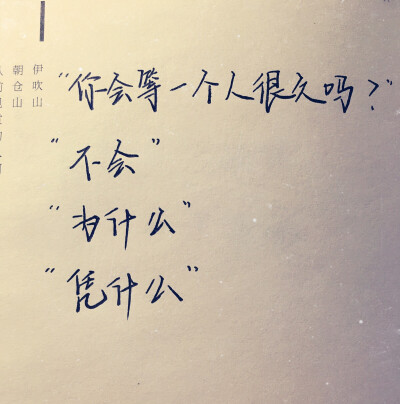 "你会等一个人很久吗？"
"不会"
"为什么"
"凭什么"
伊吹山
朝仓山